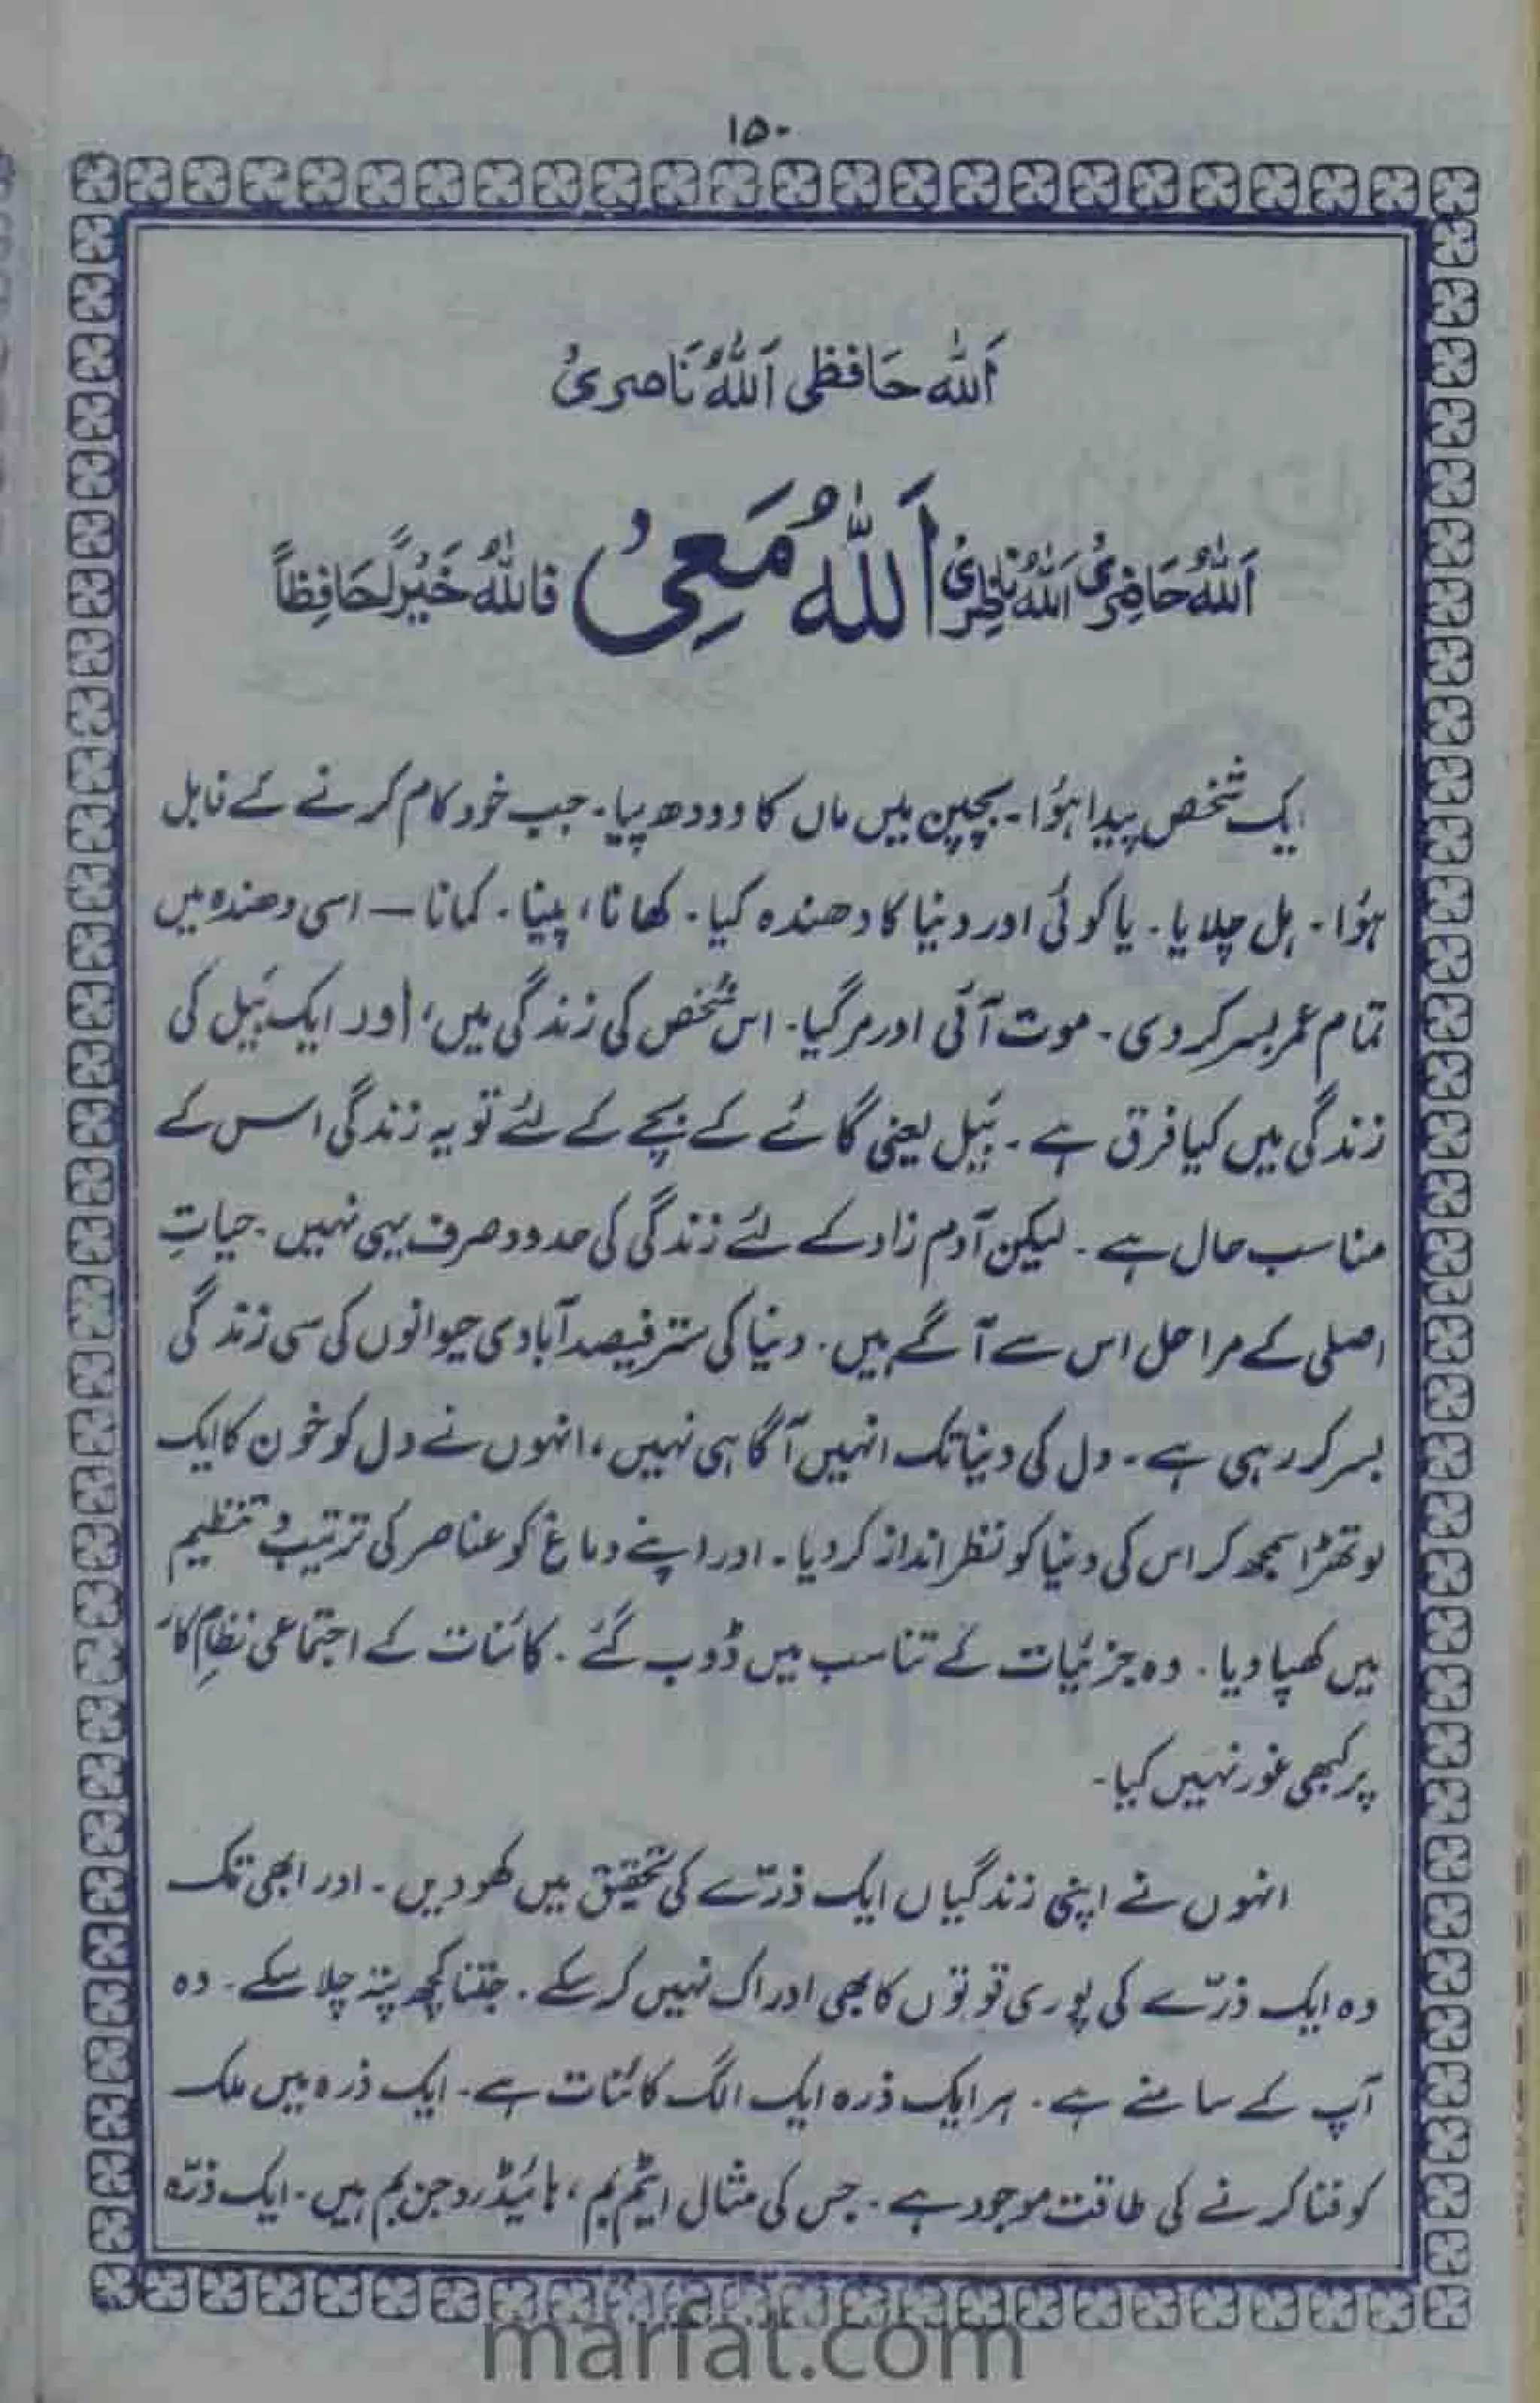 ۱۵۰
اَللّٰه حَافظی اَللّٰهُ نَاصریُ
اَللّٰهُ حَاضِریُ اَللّٰهُ نَاظِریُ اَللّٰهُ مَعِیُ فَاللّٰهُ خَیْرٌ لحَافِظاً
ایک شخص پیدا ہؤا۔ بچپن میں ماں کا دودھ پیا۔ جب خود کام کرنے کے قابل
ہؤا۔ ہل چلایا۔ یا کوئی اور دنیا کا دھندہ کیا۔ کھانا، پینا۔ کمانا — اسی دھندہ میں
تمام عمر بسر کر دی۔ موت آئی اور مر گیا۔ اس شخص کی زندگی میں، اور ایک بَیل کی
زندگی میں کیا فرق ہے۔ بَیل یعنی گائے کے بچے کے لئے تو یہ زندگی اس کے
مناسب حال ہے۔ لیکن آدم زاد کے لئے زندگی کی حدود صرف یہی نہیں۔ حیاتِ
اصلی کے مراحل اس سے آگے ہیں۔ دنیا کی ستر فیصد آبادی حیوانوں کی سی زندگی
بسر کر رہی ہے۔ دل کی دنیا تک انہیں آگاہی نہیں، انہوں نے دل کو خون کا ایک
لوتھڑا سمجھ کر اس کی دنیا کو نظر انداز کر دیا۔ اور اپنے دماغ کو عناصر کی ترتیب و تنظیم
میں کھپا دیا۔ وہ جزئیات کے تناسب میں ڈوب گئے۔ کائنات کے اجتماعی نظامِ کار
پر کبھی غور نہیں کیا۔
انہوں نے اپنی زندگیاں ایک ذرّے کی تحقیق میں کھو دیں۔ اور ابھی تک
وہ ایک ذرّے کی پوری قوتوں کا بھی ادراک نہیں کر سکے۔ جتنا کچھ پتہ چلا سکے۔ وہ
آپ کے سامنے ہے۔ ہر ایک ذرہ ایک الگ کائنات ہے۔ ایک ذرہ میں ملک
کو فنا کرنے کی طاقت موجود ہے۔ جس کی مثال ایٹم بم، ہائیڈروجن بم ہیں۔ ایک ذرّہ
marfat.com